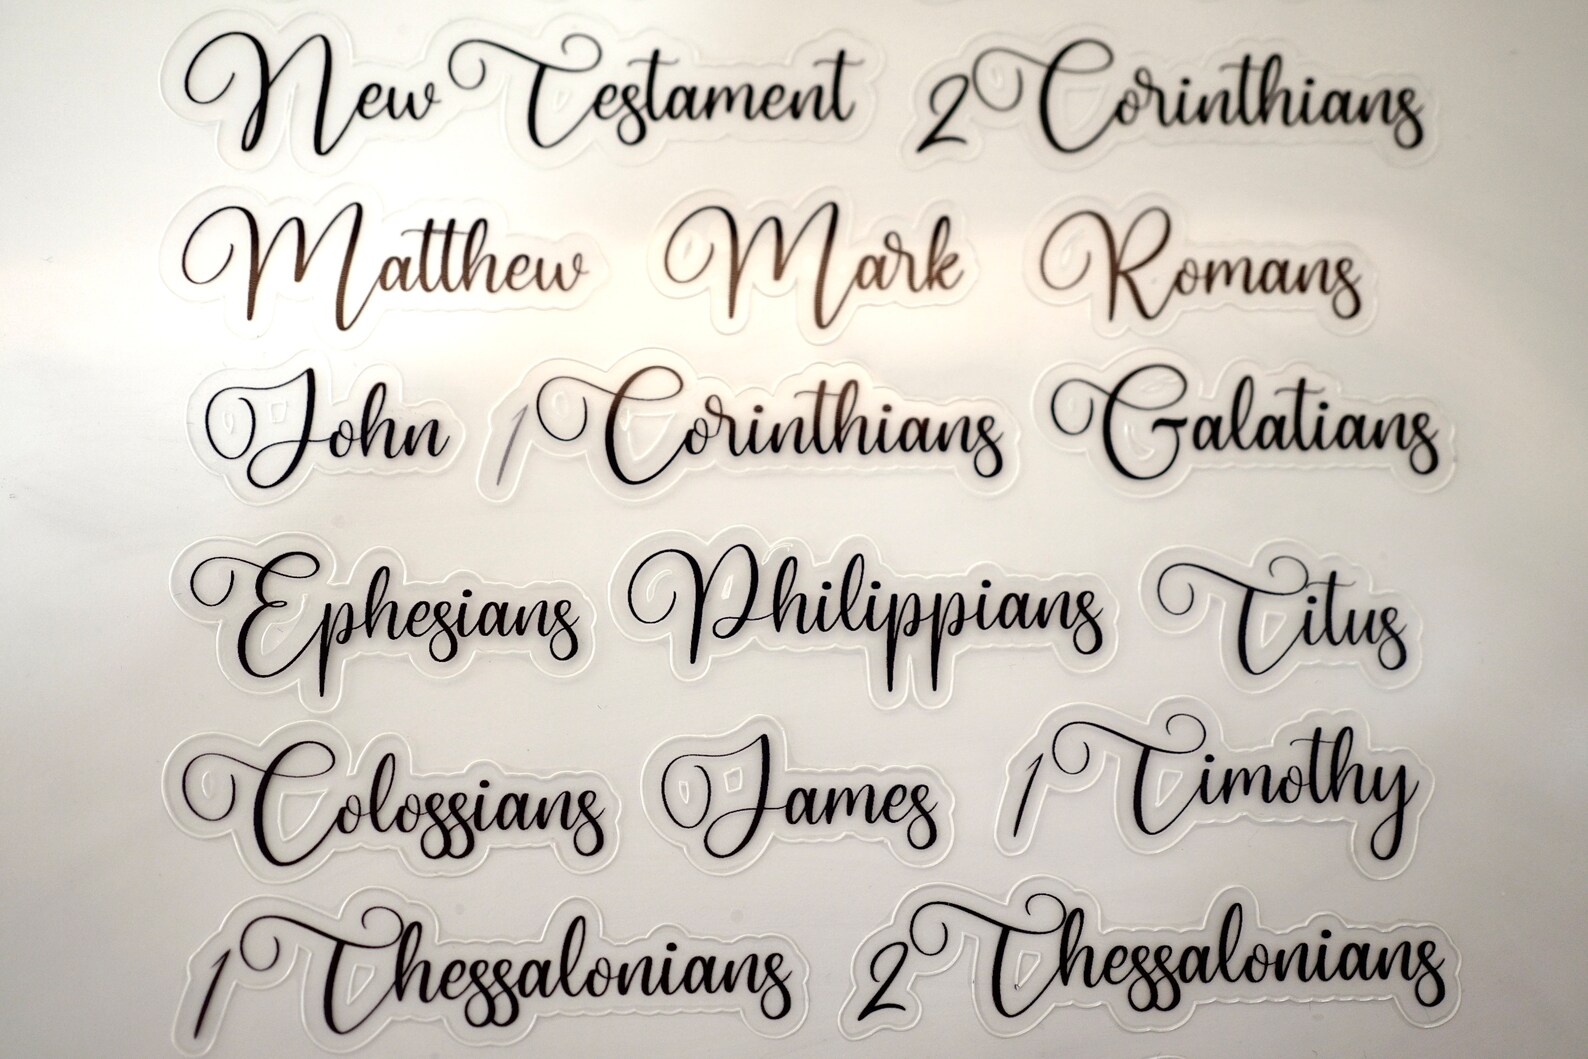 New Testament 2 Corinthians
Matthew Mark Romans
John 1 Corinthians Galatians
Ephesians Philippians Titus
Colossians James 1 Timothy
1 Thessalonians 2 Thessalonians